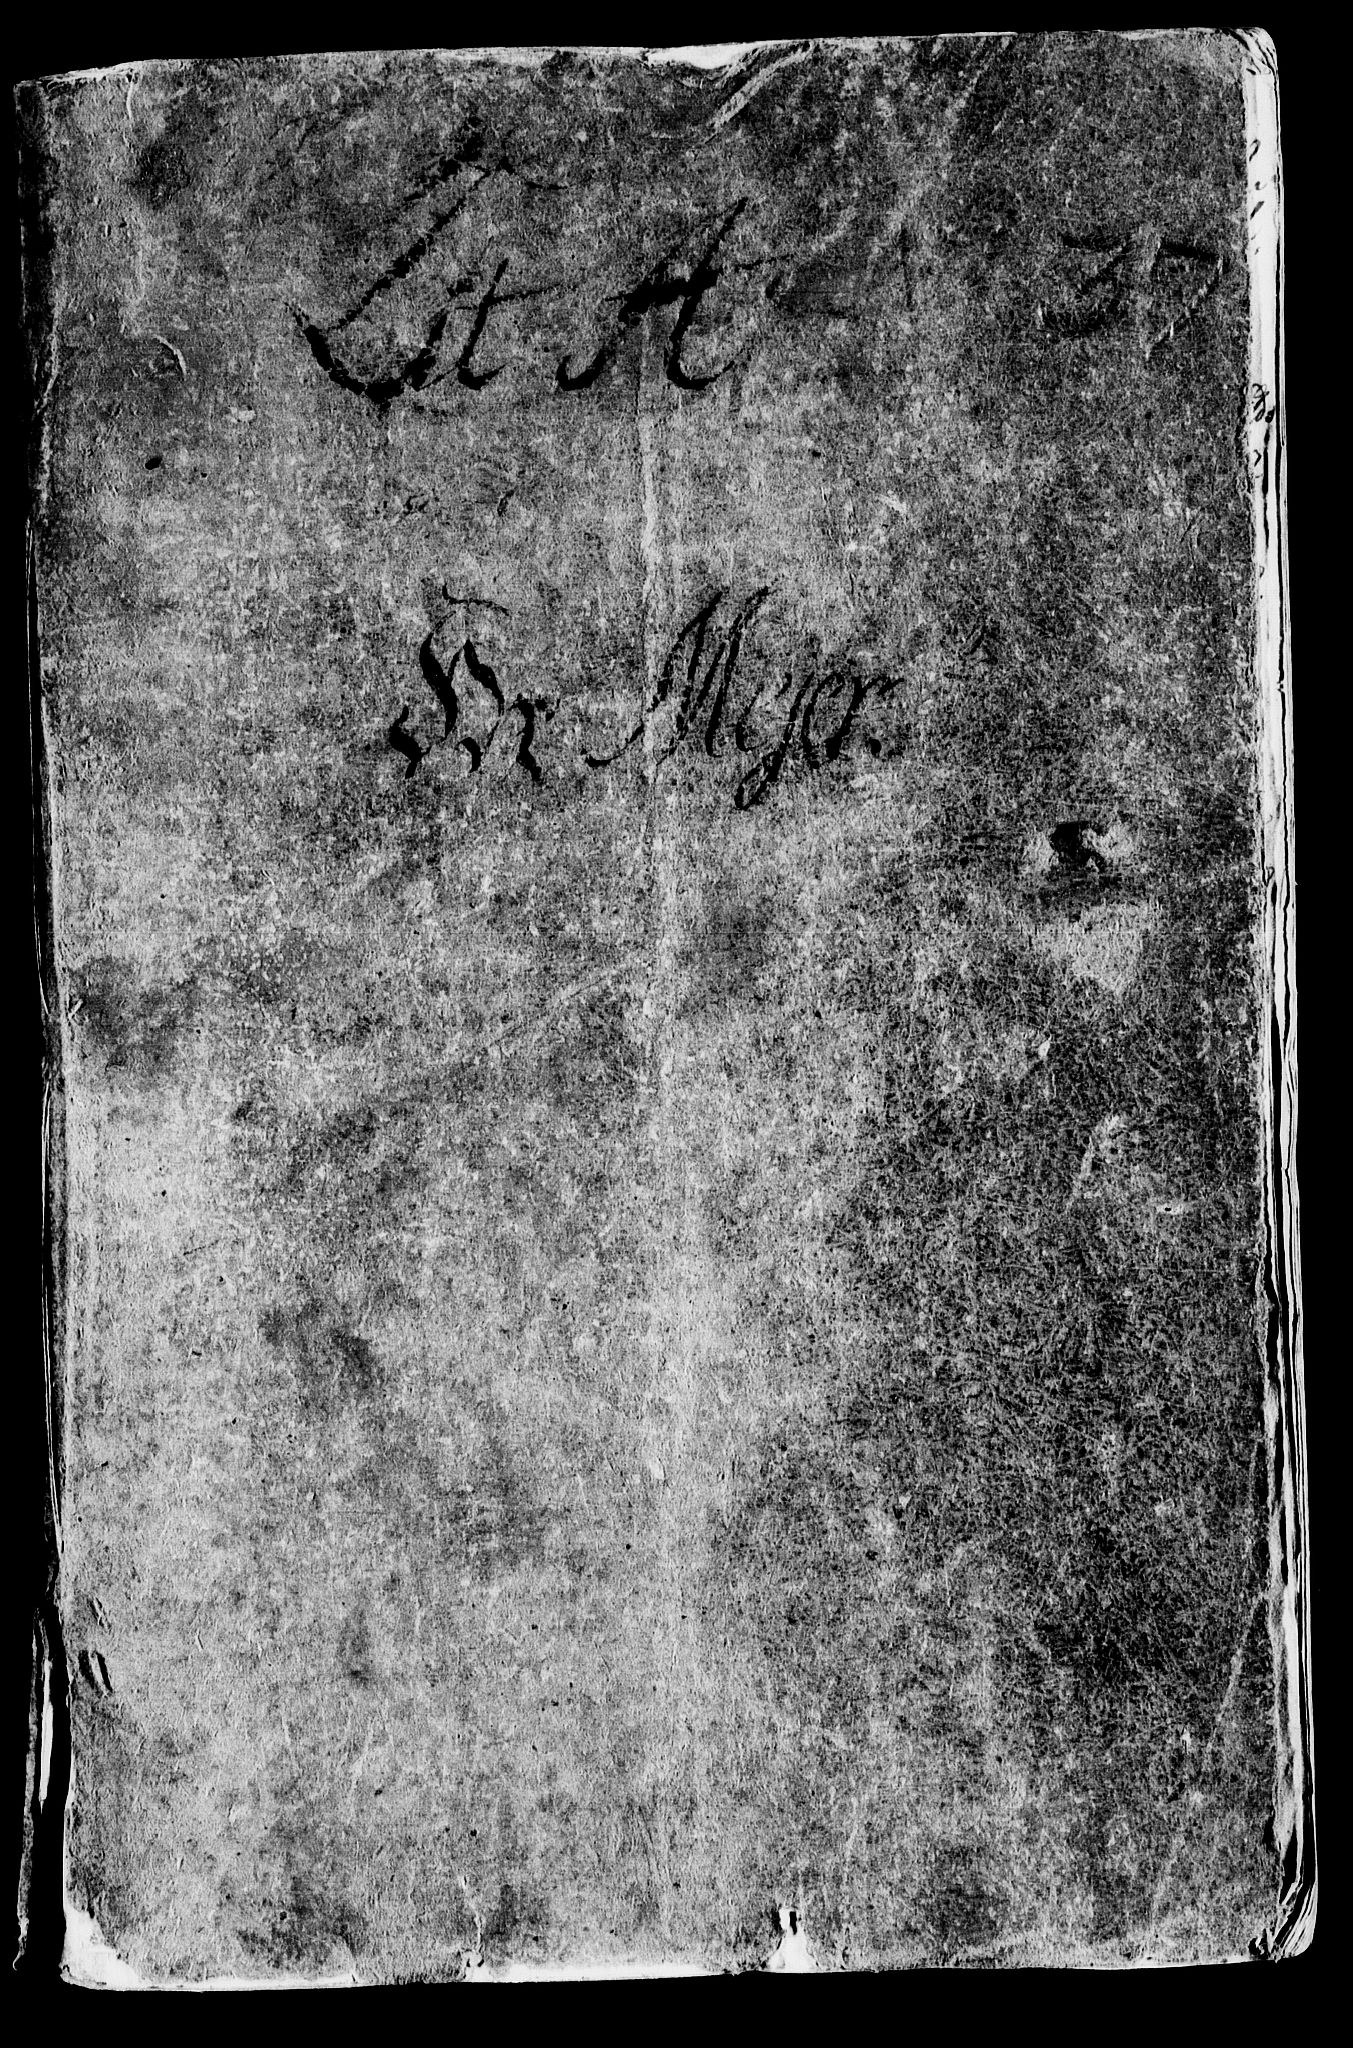 Lit A 37
Hr Mejer.